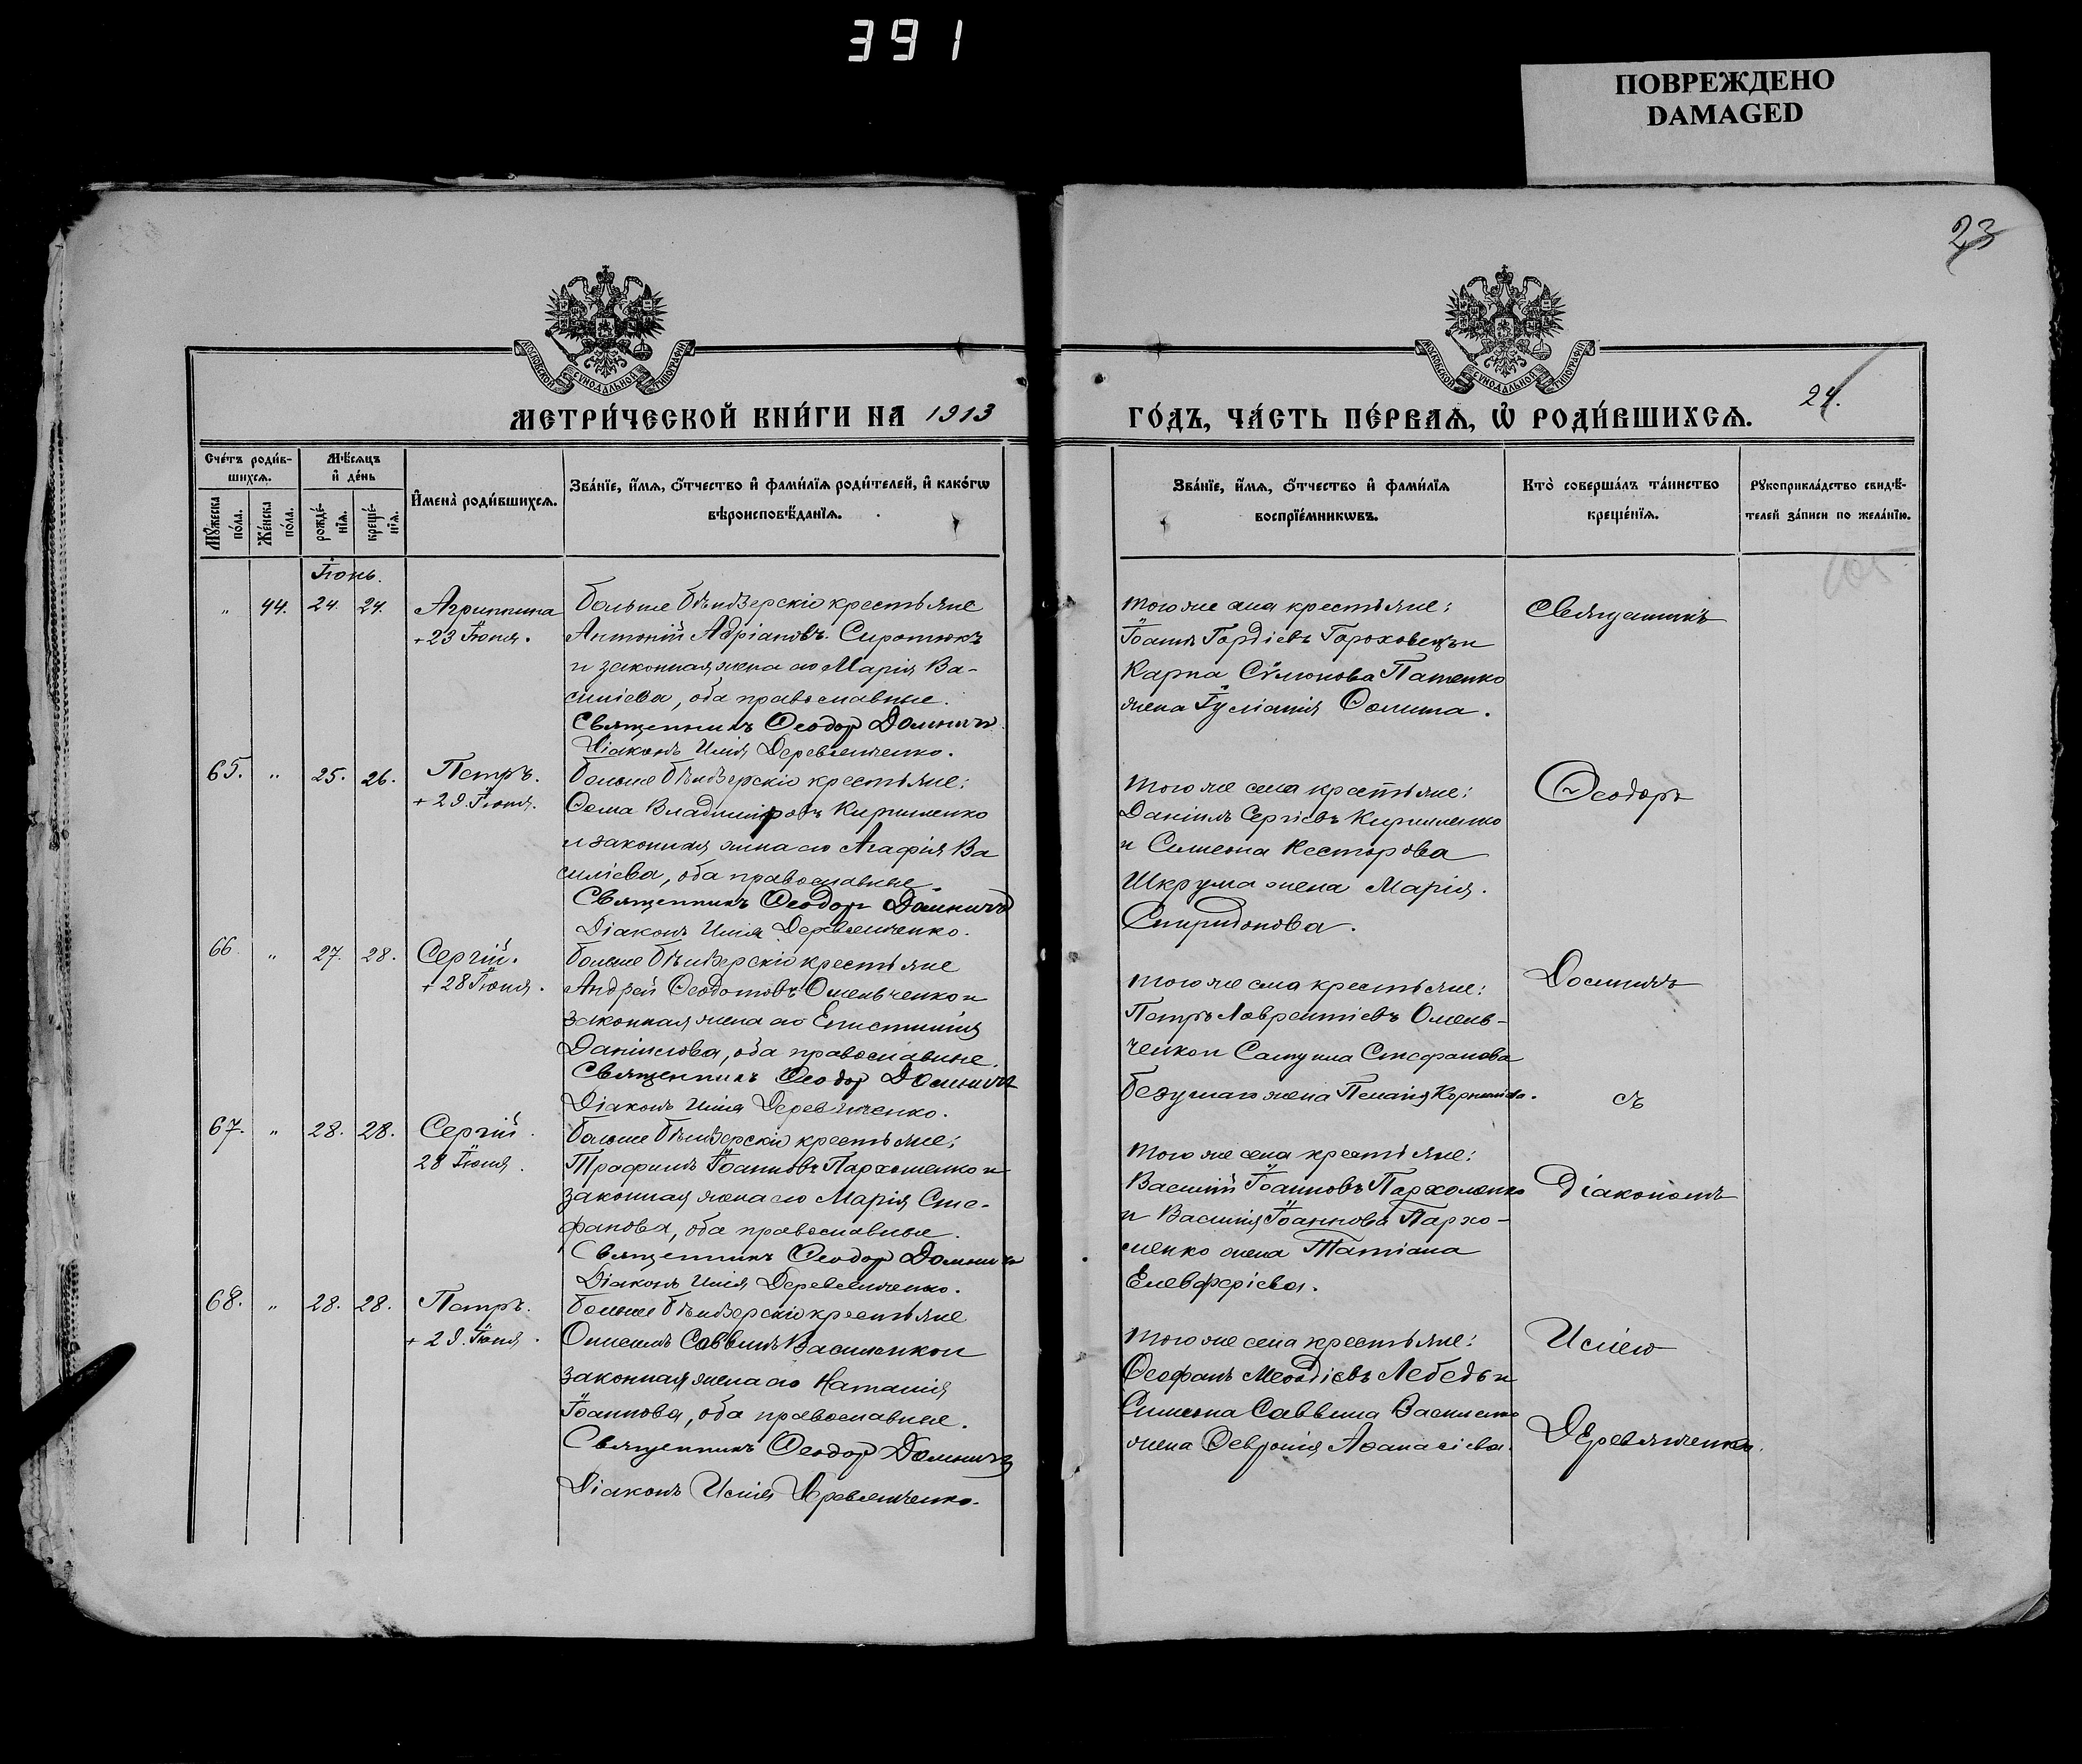 391
ПОВРЕЖДЕНО
DAMAGED
23
МОСКОВСКОЙ СѴНОДАЛЬНОЙ ТИПОГРАФІИ
МОСКОВСКОЙ СѴНОДАЛЬНОЙ ТИПОГРАФІИ
МЕТРИ́ЧЕСКОЙ КНИ́ГИ НА 1913
ГО́ДЪ, ЧА́СТЬ ПЕ́РВАѦ, Ѡ҆ РОДИ́ВШИХСѦ.
24.
Сче́тъ роди́в-
шихсѧ.
Мꙋ́жеска по́ла.
Же́нска по́ла.
Мѣ́сѧцъ
и҆ де́нь
рожде́-
нїѧ.
креще́-
нїѧ.
И҆мена̀ роди́вшихсѧ.
Зва́нїе, и҆́мѧ, ѻ҆́тчество и҆ фами́лїѧ роди́телей, и҆ како́гѡ
вѣроисповѣ́данїѧ.
Зва́нїе, и҆́мѧ, ѻ҆́тчество и҆ фами́лїѧ
воспрїе́мникѡвъ.
Кто̀ соверша́лъ та́инство
креще́нїѧ.
Рꙋкоприкла́дство свидѣ́-
телей за́писи по жела́нїю.
Іюнь.
„ 44. 24. 24. Агриппина
+ 23 Іюня.
Больше Бѣлозерскіе крестьяне
Антоній Адріановъ Сиротюкъ
и законная жена его Марія Ва-
силіева, оба православные.
Священникъ Ѳеодор Домничъ
Діаконъ Илія Деревянченко.
того же села крестьяне:
Іоаннъ Гордіевъ Гороховецъ и
Карпа Сѵмонова Патенко
жена Іуліанія Ѳомина.
Священникъ
65. „ 25. 26. Петръ.
+ 29. Іюня.
больше Бѣлозерскіе крестьяне:
Ѳома Владиміровъ Кириленко
и законная жена его Агафія Ва
силіева, оба православные.
Священникъ Ѳеодор Домничъ
Діаконъ Илія Деревянченко.
того же села крестьяне:
Даніилъ Сергіевъ Кириленко
и Симеона Несторова
Шкрума жена Марія
Спиридонова.
Ѳеодоръ
66. „ 27. 28. Сергій.
+ 28 Іюня.
больше Бѣлозерскіе крестьяне
Андрей Ѳеодотовъ Омельченко и
законная жена его Епистимія
Даніилова, оба православные.
Священникъ Ѳеодор Домничъ
Діаконъ Илія Деревянченко.
того же села крестьяне:
Петръ Лаврентіевъ Омель-
ченко и Стефанова
жена Пелагія Корниліева.
Домничъ
съ
67. „ 28. 28. Сергій.
28 Іюня.
больше Бѣлозерскіе крестьяне:
Трофимъ Іоанновъ Пархоменко и
законная жена его Марія Сте-
фанова, оба православные.
Священникъ Ѳеодор Домничъ
Діаконъ Илія Деревянченко.
того же села крестьяне:
Василій Іоанновъ Пархоменко
и Василія Іоаннова Пархо-
менко жена Татіана
Елевферіева.
Діакономъ
68. „ 28. 28. Петръ.
+ 29. Іюня.
больше Бѣлозерскіе крестьяне
Саввинъ Василенко и
законная жена его Наталія
Іоаннова, оба православные.
Священникъ Ѳеодор Домничъ
Діаконъ Илія Деревянченко.
того же села крестьяне:
Ѳеофанъ Меѳодіевъ Лебедь и
Симеона Саввина Василенко
жена Февронія Аѳанасіева.
Иліею
Деревянченко.